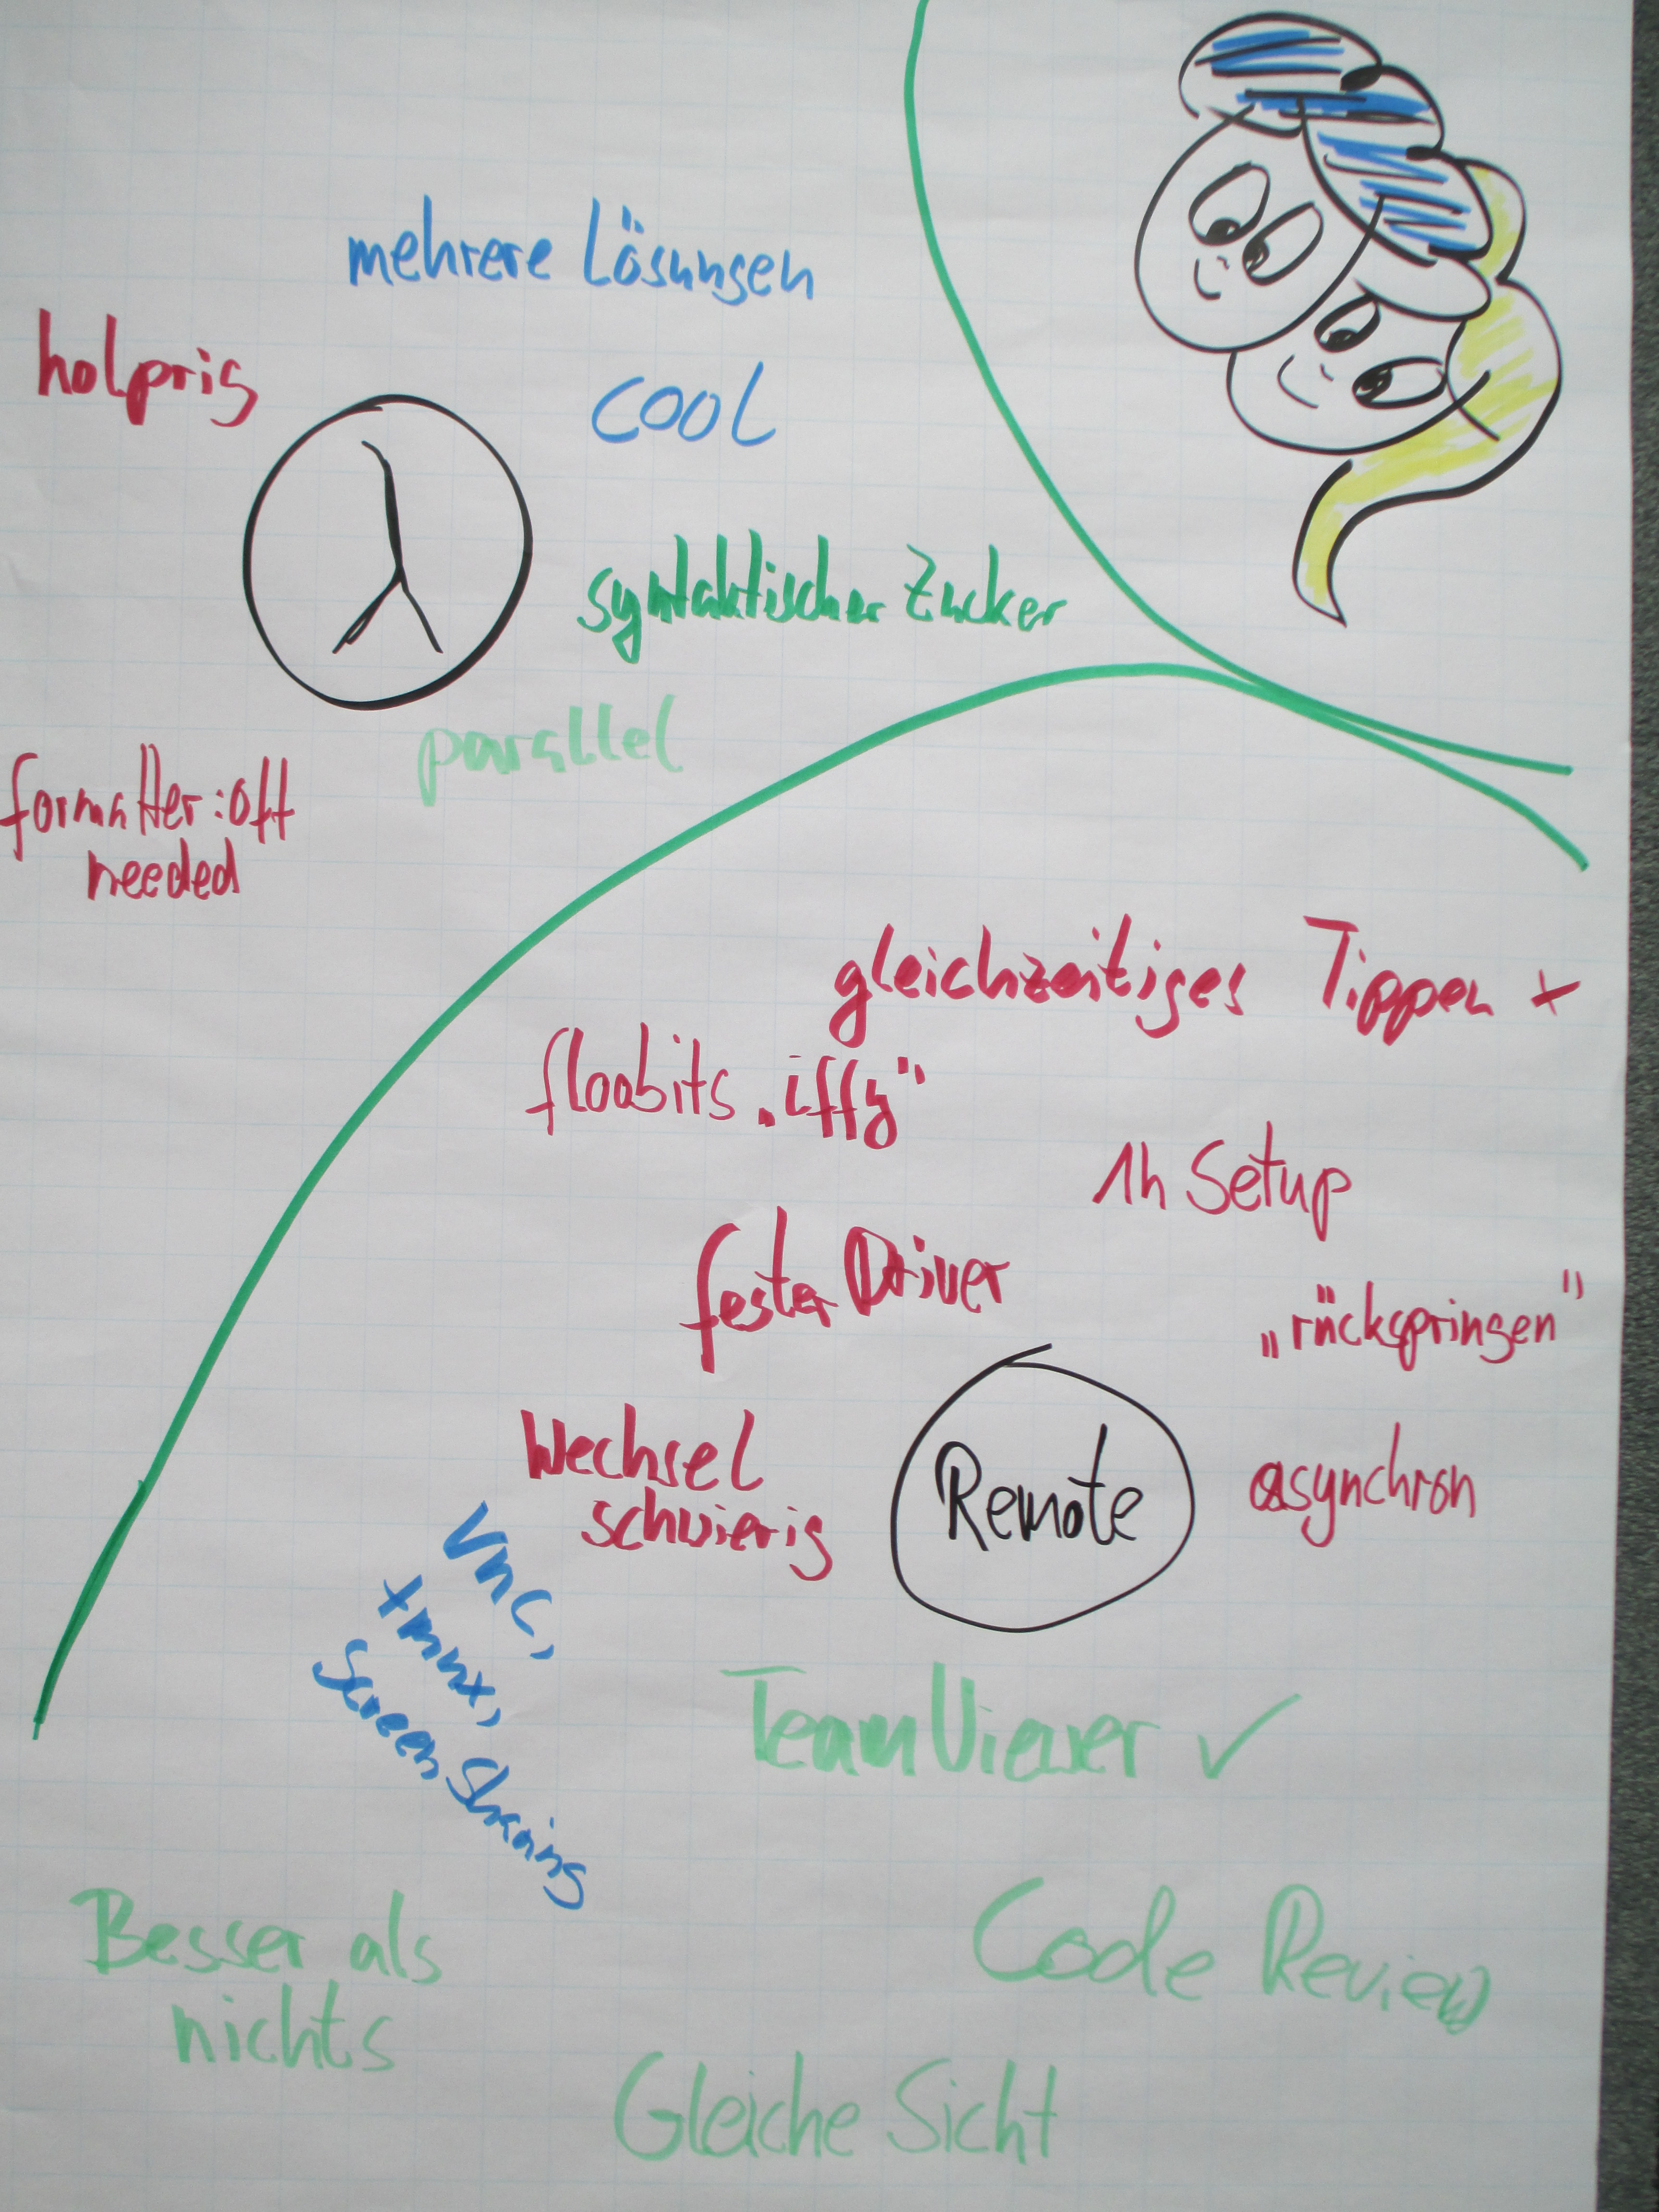 mehrere Lösungen
holprig
cool
λ
syntaktischer Zucker
parallel
formatter:off
needed
gleichzeitiges Tippen +
floobits „iffy“
1h Setup
fester Driver
„rückspringen“
Wechsel
schwierig
Remote
asynchron
VNC,
tmux,
Screen Sharing
TeamViewer ✓
Besser als
nichts
Code Review
Gleiche Sicht